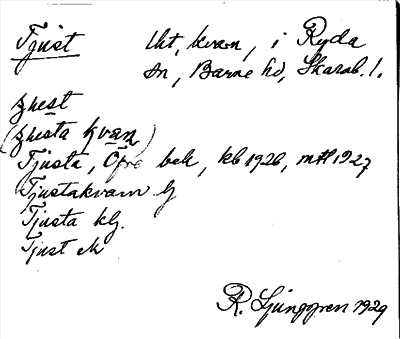 Tjust Uht, kvarn, i Ryda
sn, Barne hd, Skarab. l.
ʒuest
(ʒusta kvan)
Tjusta, Öfre bek, kb 1926, mtl 1927
Tjustakvarn G
Tjusta kg.
Tjust ek
R. Ljunggren 1929